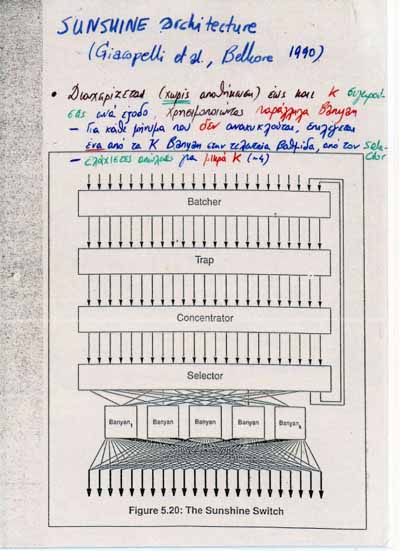 SUNSHINE architecture
(Giacopelli et al., Bellcore 1990)
• Διαχειρίζεται (χωρίς αποθήκευση) έως και K συγκρού-
σεις ανά έξοδο, χρησιμοποιώντας παράλληλα Banyan
– Για κάθε μήνυμα που δεν ανακυκλούται, επιλέγεται
ένα από τα K Banyan στην τελευταία βαθμίδα, από τον Sele-
ctor
– ελάχιστες απώλειες για μικρά K (~4)
Batcher
Trap
Concentrator
Selector
Banyan1 Banyan Banyan Banyan Banyank
Figure 5.20: The Sunshine Switch